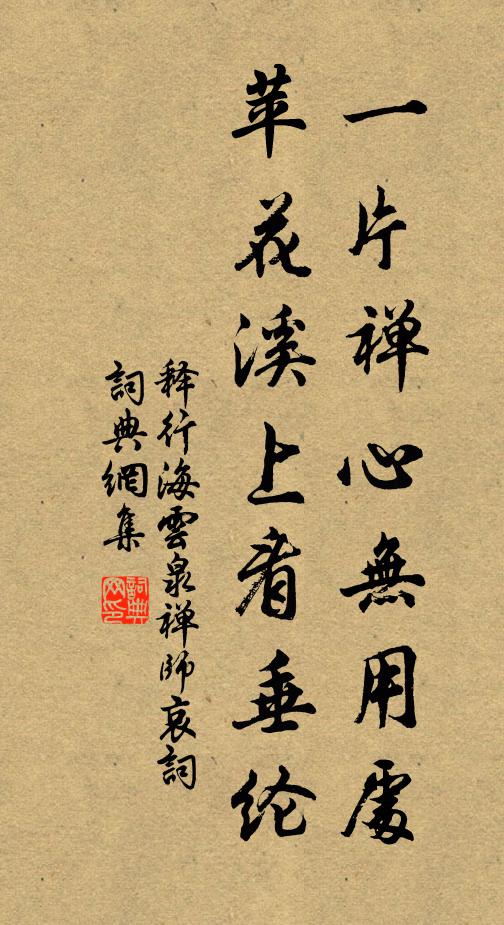 一片禅心無用處
苹花溪上看垂纶
释行海雲泉禅師哀詞
詞典網集
詞典網印